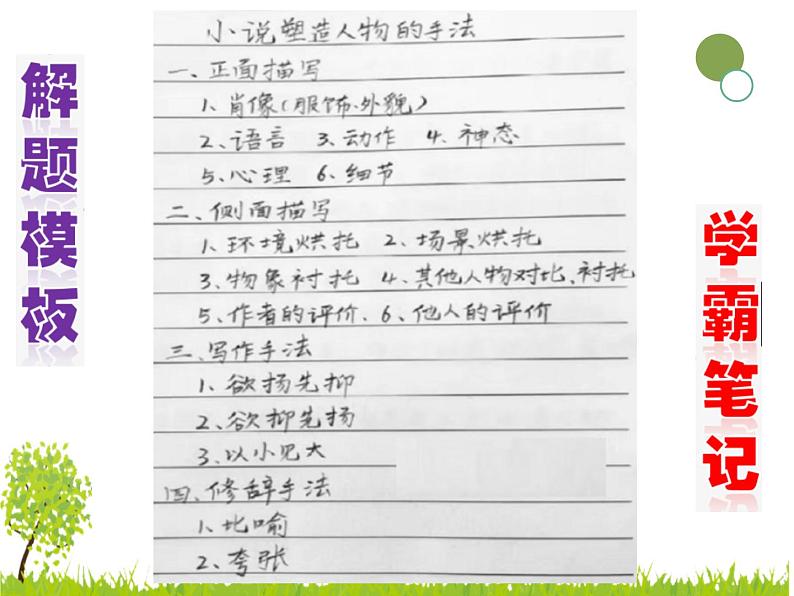 解题模板
小说塑造人物的手法
一、正面描写
1、肖像(服饰、外貌)
2、语言 3、动作 4、神态
5、心理 6、细节
二、侧面描写
1、环境烘托 2、场景烘托
3、物象衬托 4、其他人物对比、衬托
5、作者的评价、6、他人的评价
三、写作手法
1、欲扬先抑
2、欲抑先扬
3、以小见大
四、修辞手法
1、比喻
2、夸张
学霸笔记